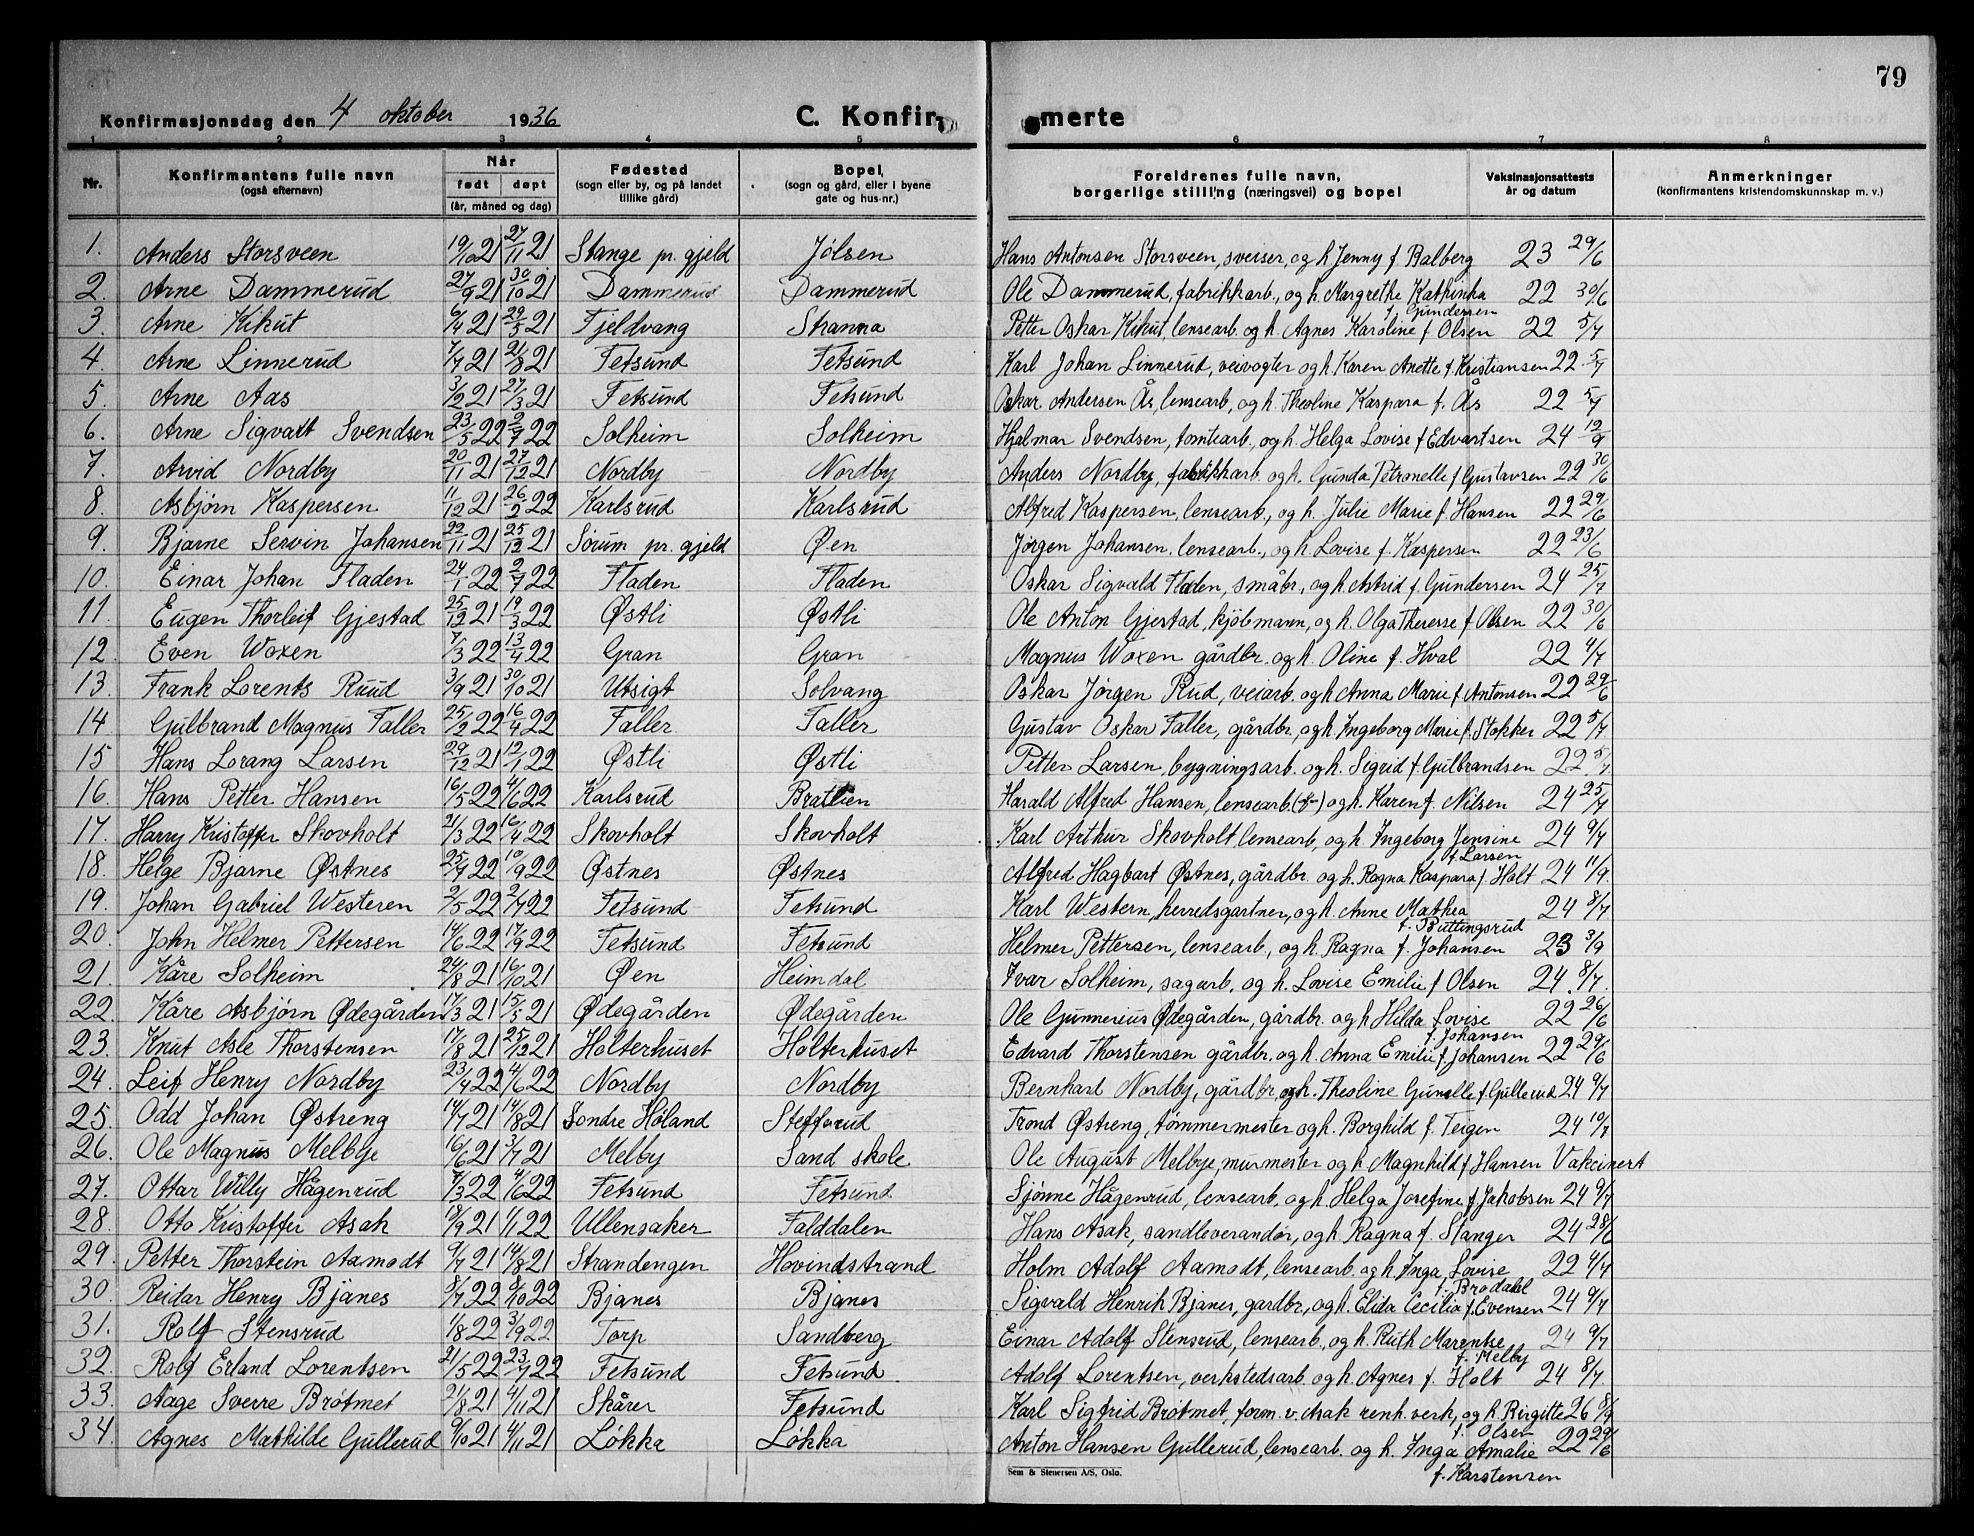 79
Konfirmasjonsdag den 4 oktober 1936 C. Konfirmerte
1 2 3 4 5 6 7 8
Nr. Konfirmantens fulle navn (også efternavn) Når født døpt (år, måned og dag) Fødested (sogn eller by, og på landet tillike gård) Bopel, (sogn og gård, eller i byene gate og hus-nr.) Foreldrenes fulle navn, borgerlige stilling (næringsvei) og bopel Vaksinasjonsattests år og datum Anmerkninger (konfirmantens kristendomskunnskap m. v.)
1. Anders Storsveen 19/10 21 27/11 21 Stange pr. gjeld Jølsen Hans Antonsen Storsveen, sveiser, og h Jenny f. Balberg 23 29/6
2. Arne Dammerud 27/9 21 30/10 21 Dammerud Dammerud Ole Dammerud, fabrikkarb., og h. Margrethe Kathinka f. Gundersen 22 30/6
3. Arne Kikut 6/4 21 29/5 21 Fjeldvang Stranna Petter Oskar Kikut, lensearb. og h. Agnes Karoline f Olsen 22 5/7
4. Arne Linnerud 7/7 21 21/8 21 Fetsund Fetsund Karl Johan Linnerud, veivogter og h Karen Anette f Kristiansen 22 5/7
5. Arne Aas 3/2 21 27/3 21 Fetsund Fetsund Oskar Andersen Ås, lensearb, og h. Theoline Kaspara f. Ås 22 5/7
6. Arne Sigvart Svendsen 23/5 22 2/7 22 Solheim Solheim Hjalmar Svendsen, tomtearb., og h. Helga Lovise f Edvartsen 24 12/9
7. Arvid Nordby 20/11 21 27/12 21 Nordby Nordby Anders Nordby, fabrikkarb og h. Gunda Petronelle f Gustavsen 22 30/6
8. Asbjørn Kaspersen 11/12 21 26/2 22 Karlsrud Karlsrud Alfred Kaspersen, lensearb., og h. Julie Marie f. Hansen 22 29/6
9. Bjarne Servin Johansen 22/11 21 25/12 21 Sørum pr. gjeld Øen Jørgen Johansen, lensearb., og h. Lovise f. Kaspersen 22 23/6
10. Einar Johan Fladen 24/1 22 2/7 22 Fladen Fladen Oskar Sigvald Fladen, småbr., og h Astrid f. Gundersen 24 25/7
11. Eugen Thorleif Gjestad 25/12 21 19/3 22 Østli Østli Ole Anton Gjestad, kjøbmann, og h. Olga Theresse f Olsen 22 30/6
12. Even Woxen 7/3 22 13/4 22 Gran Gran Magnus Woxen gårdbr. og h. Oline f. Hval 22 4/7
13. Frank Lorents Ruud 3/9 21 30/10 21 Utsigt Solvang Oskar Jørgen Rud, veiarb. og h Anna Marie f Antonsen 22 29/6
14 Gulbrand Magnus Faller 25/2 22 16/4 22 Faller Faller Gustav Oskar Faller, gårdbr, og h Ingeborg Marie f. Stokker 22 5/7
15 Hans Lorang Larsen 29/12 21 12/1 22 Østli Østli Petter Larsen, bygningsarb. og h. Sigrid f. Gulbrandsen 22 5/7
16. Hans Petter Hansen 16/5 22 4/6 22 Karlsrud Bratlien Harald Alfred Hansen, lensearb og h. Karen f. Nilsen 24 25/7
17. Harry Kristoffer Skovholt 21/3 22 16/4 22 Skovholt Skovholt Karl Arthur Skovholt lensearb, og h Ingeborg Jensine f. Larsen 24 9/7
18. Helge Bjarne Østnes 22 10/9 22 Østnes Østnes Alfred Hagbart Østnes, gårdbr. og h. Ragna Kaspara f. Holt 24 11/9
19. Johan Gabriel Westeren 2/5 22 2/7 22 Fetsund Fetsund Karl Western, herredsgartner, og h. Anne Mathea f. Buttingsrud 24 8/7
20. John Helmer Pettersen 14/6 22 17/9 22 Fetsund Fetsund Helmer Pettersen, lensearb, og h. Ragna f. Johansen 23 3/9
21. Kåre Solheim 24/8 21 16/10 21 Øen Heimdal Ivar Solheim, sagarb, og h. Lovise Emilie f Olsen 24. 8/7.
22. Kåre Asbjørn Ødegården 17/3 21 15/5 21 Ødegården Ødegården Ole Gunnerius Ødegården, gårdbr. og h Hilda Lovise f. Johansen 22 26/6
23. Knut Asle Thorstensen 17/8 21 25/12 21 Holterhuset Holterhuset Edvard Thorstensen gårdbr, og h. Anna Emilie f. Johansen 22 29/6
24. Leif Henry Nordby 23/4 22 4/6 22 Nordby Nordby Bernhart Nordby, gårdbr, og h. Theoline Gunelle f Gullerud 24 9/7
25. Odd Johan Østreng 14/7 21 14/8 21 Søndre Høland Stefferud Trond Østreng, tømmermester og h. Borghild f. Teigen 24 10/7
26. Ole Magnus Melbye 16/6 21 3/7 21 Melby Sand skole Ole August Melbye, murmester og h Magnhild f Hansen Vakcinert
27. Ottar Willy Hågenrud 7/3 22 4/6 22 Fetsund Fetsund Sjønne Hågenrud, lensearb, og h. Helga Josefine f Jakobsen 24 9/7
28. Otto Kristoffer Asak 18/9 21 1/1 22 Ullensaker Falddalen Hans Asak, sandleverandør, og h. Ragna f. Stanger 24 28/6
29. Petter Thorstein Aamodt 9/7 21 14/8 21 Strandengen Hovindstrand Holm Adolf Aamodt, lensearb. og h. Inga Lovise f. Brodahl 22 4/7
30. Reidar Henry Bjanes 8/7 22 8/10 22 Bjanes Bjanes Sigvald Henrik Bjanes, gardbr, og h. Elida Cecilia f. Evensen 24 9/7
31. Rolf Stensrud 1/8 22 3/9 22 Torp Sandberg Einar Adolf Stensrud, lensearb., og h. Ruth Marentse f. Melby 24 9/7
32. Rolf Erland Lorentsen 21/5 22 23/7 22 Fetsund Fetsund Adolf Lorentsen, verkstedsarb. og h Agnes f. Holt 24 8/7
33. Aage Sverre Brøtmet 21/8 21 4/11 21 Skårer Fetsund Karl Sigfrid Brøtmet, form. v. Asak renh. verk, og h. Birgitte f. Olsen 26 8/9
34. Agnes Mathilde Gullerud 9/10 21 4/11 21 Løkka Løkka Anton Hansen Gullerud, lensearb. og h. Inga Amalie f. Karstensen 22 29/6
Sem & Stenersen A/S, Oslo.